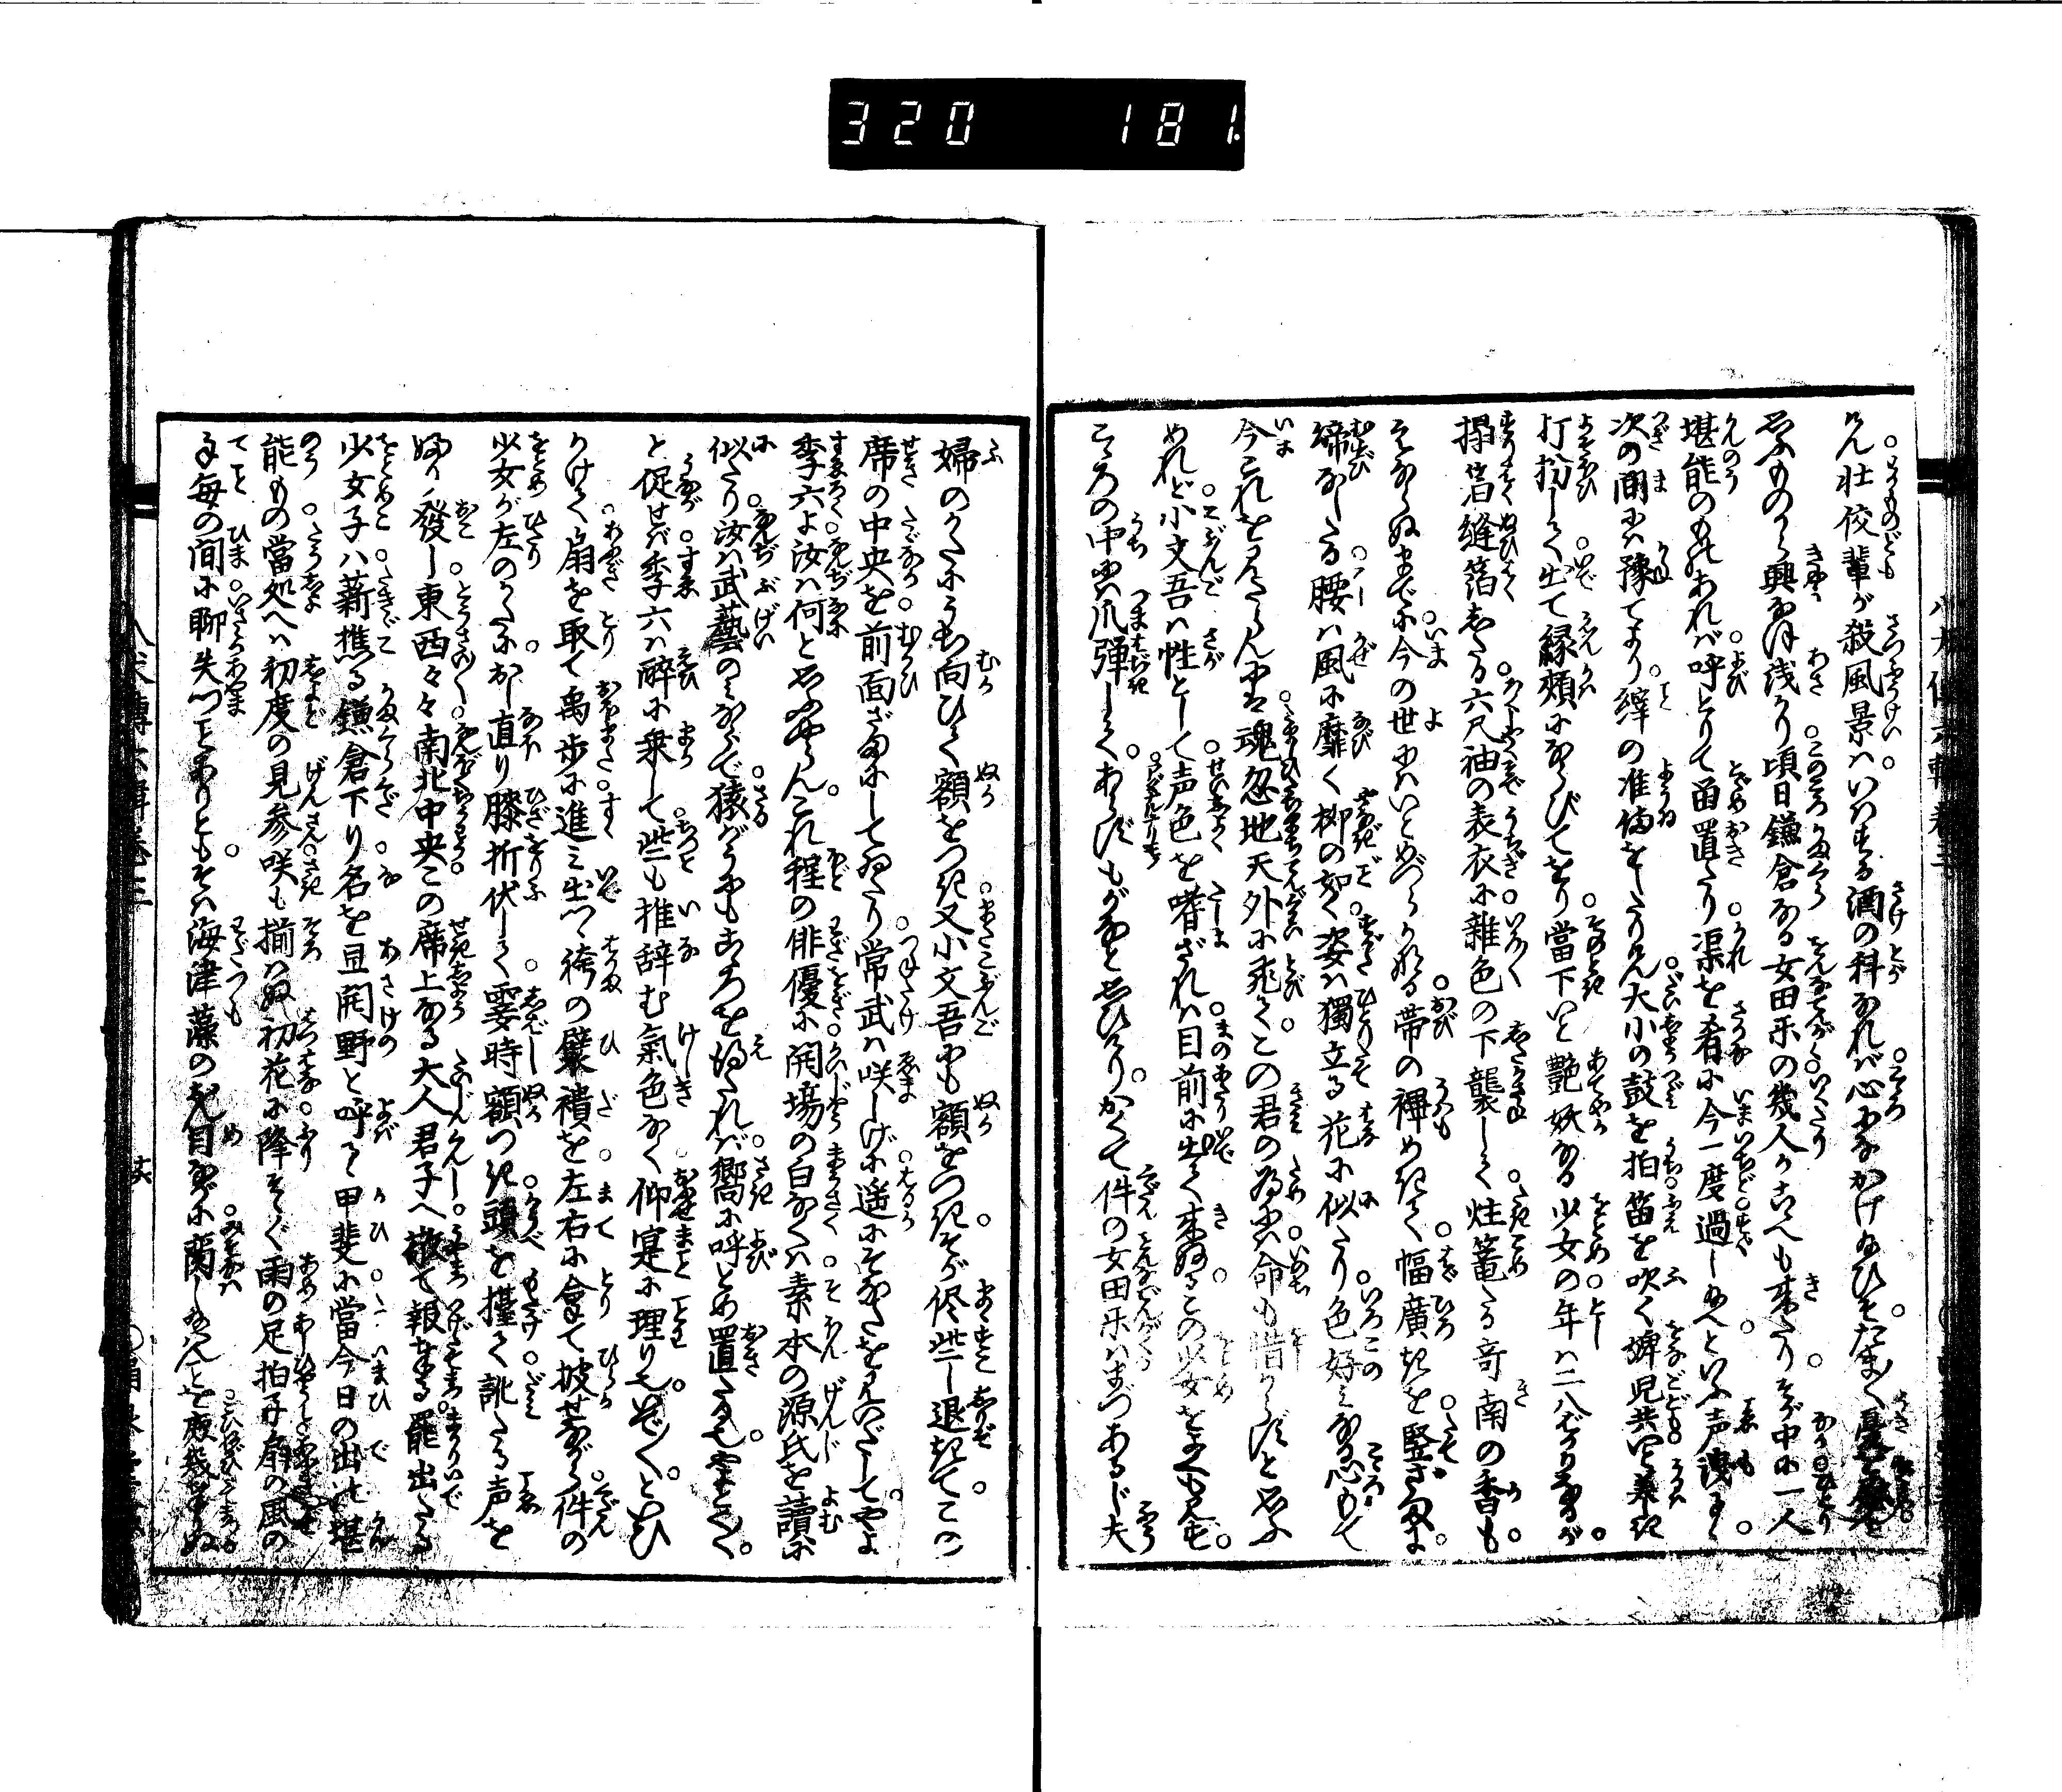 320 181
けん壮佼輩が殺風景ハいはする酒の科なれバ心になかけ給ひそたま〱憂を
思ふものから興なほ浅かり頃日鎌倉なる女田楽の幾人かこゝへも来たりそが中に一人
堪能のものあれバ呼とりて留置たり渠を肴に今一度過し給へといふ声洩るゝ
次の間にハ豫てより縡の准備をしたりけん大小の鼓を拍笛を吹く婢児共
打扮して出て縁頬にならびてをり當下いと艶妖なる少女の年ハ二八ばかりなるが
摺箔縫箔したる六尺袖の表衣に雑色の下襲して炷篭たる奇南の香も
まだ今の世にハいとめづらかなる帯の幅廣きを竪ざまに
締なしたる腰ハ風に靡く柳の如く姿ハ獨立る花に似たり色好みなる心もて
今これを見たらんにハ魂忽地天外に飛てこの君の為にハ命も惜からずと思ふ
めれど小文吾ハ性として声色を嗜ざれハ目前に出て来ぬるこの少女を見も見ず
こゝろの中にハ爪弾してあらずもがなと思ひけりかくて件の女田楽ハまづあるじ夫
婦のかたにうち向ひて額をつき又小文吾にも額をつきそが侭些し退きてこの
席の中央を前面ざまにしてをり常武ハ咲しげに遥にそなたを見かへりてやよ
季六よ汝ハ何と思ふやらんこれ程の俳優に開場の白なくハ素本の源氏を讀に
似たり汝ハ武藝のみならで猿がうにもこゝろを得たれバ嚮に呼とめ置たるぞとく〱
と促せバ季六ハ酔に乗して些も推辞む氣色なく仰寔に理りぞいでとひ
かけて扇を取て禹歩に進み出つ袴の襞襀を左右に拿て披せながら件の
少女が左のかたに直り膝折伏して霎時額つき頭を擡て訛たる声を
ふり發し東西々々南北中央この席上なる大人君子へ敬て報奉る罷出たる
少女子ハ薪樵る鎌倉下り名を旦開野と呼るゝ甲斐に當今日の出の堪
能もの當処へハ初度の見参咲も揃ハぬ初花に降そゝぐ雨の足拍子扇の風の
手毎の間に聊失つことありともそハ海津藻のみ目なに関し給ハんことを庶幾奉りぬ